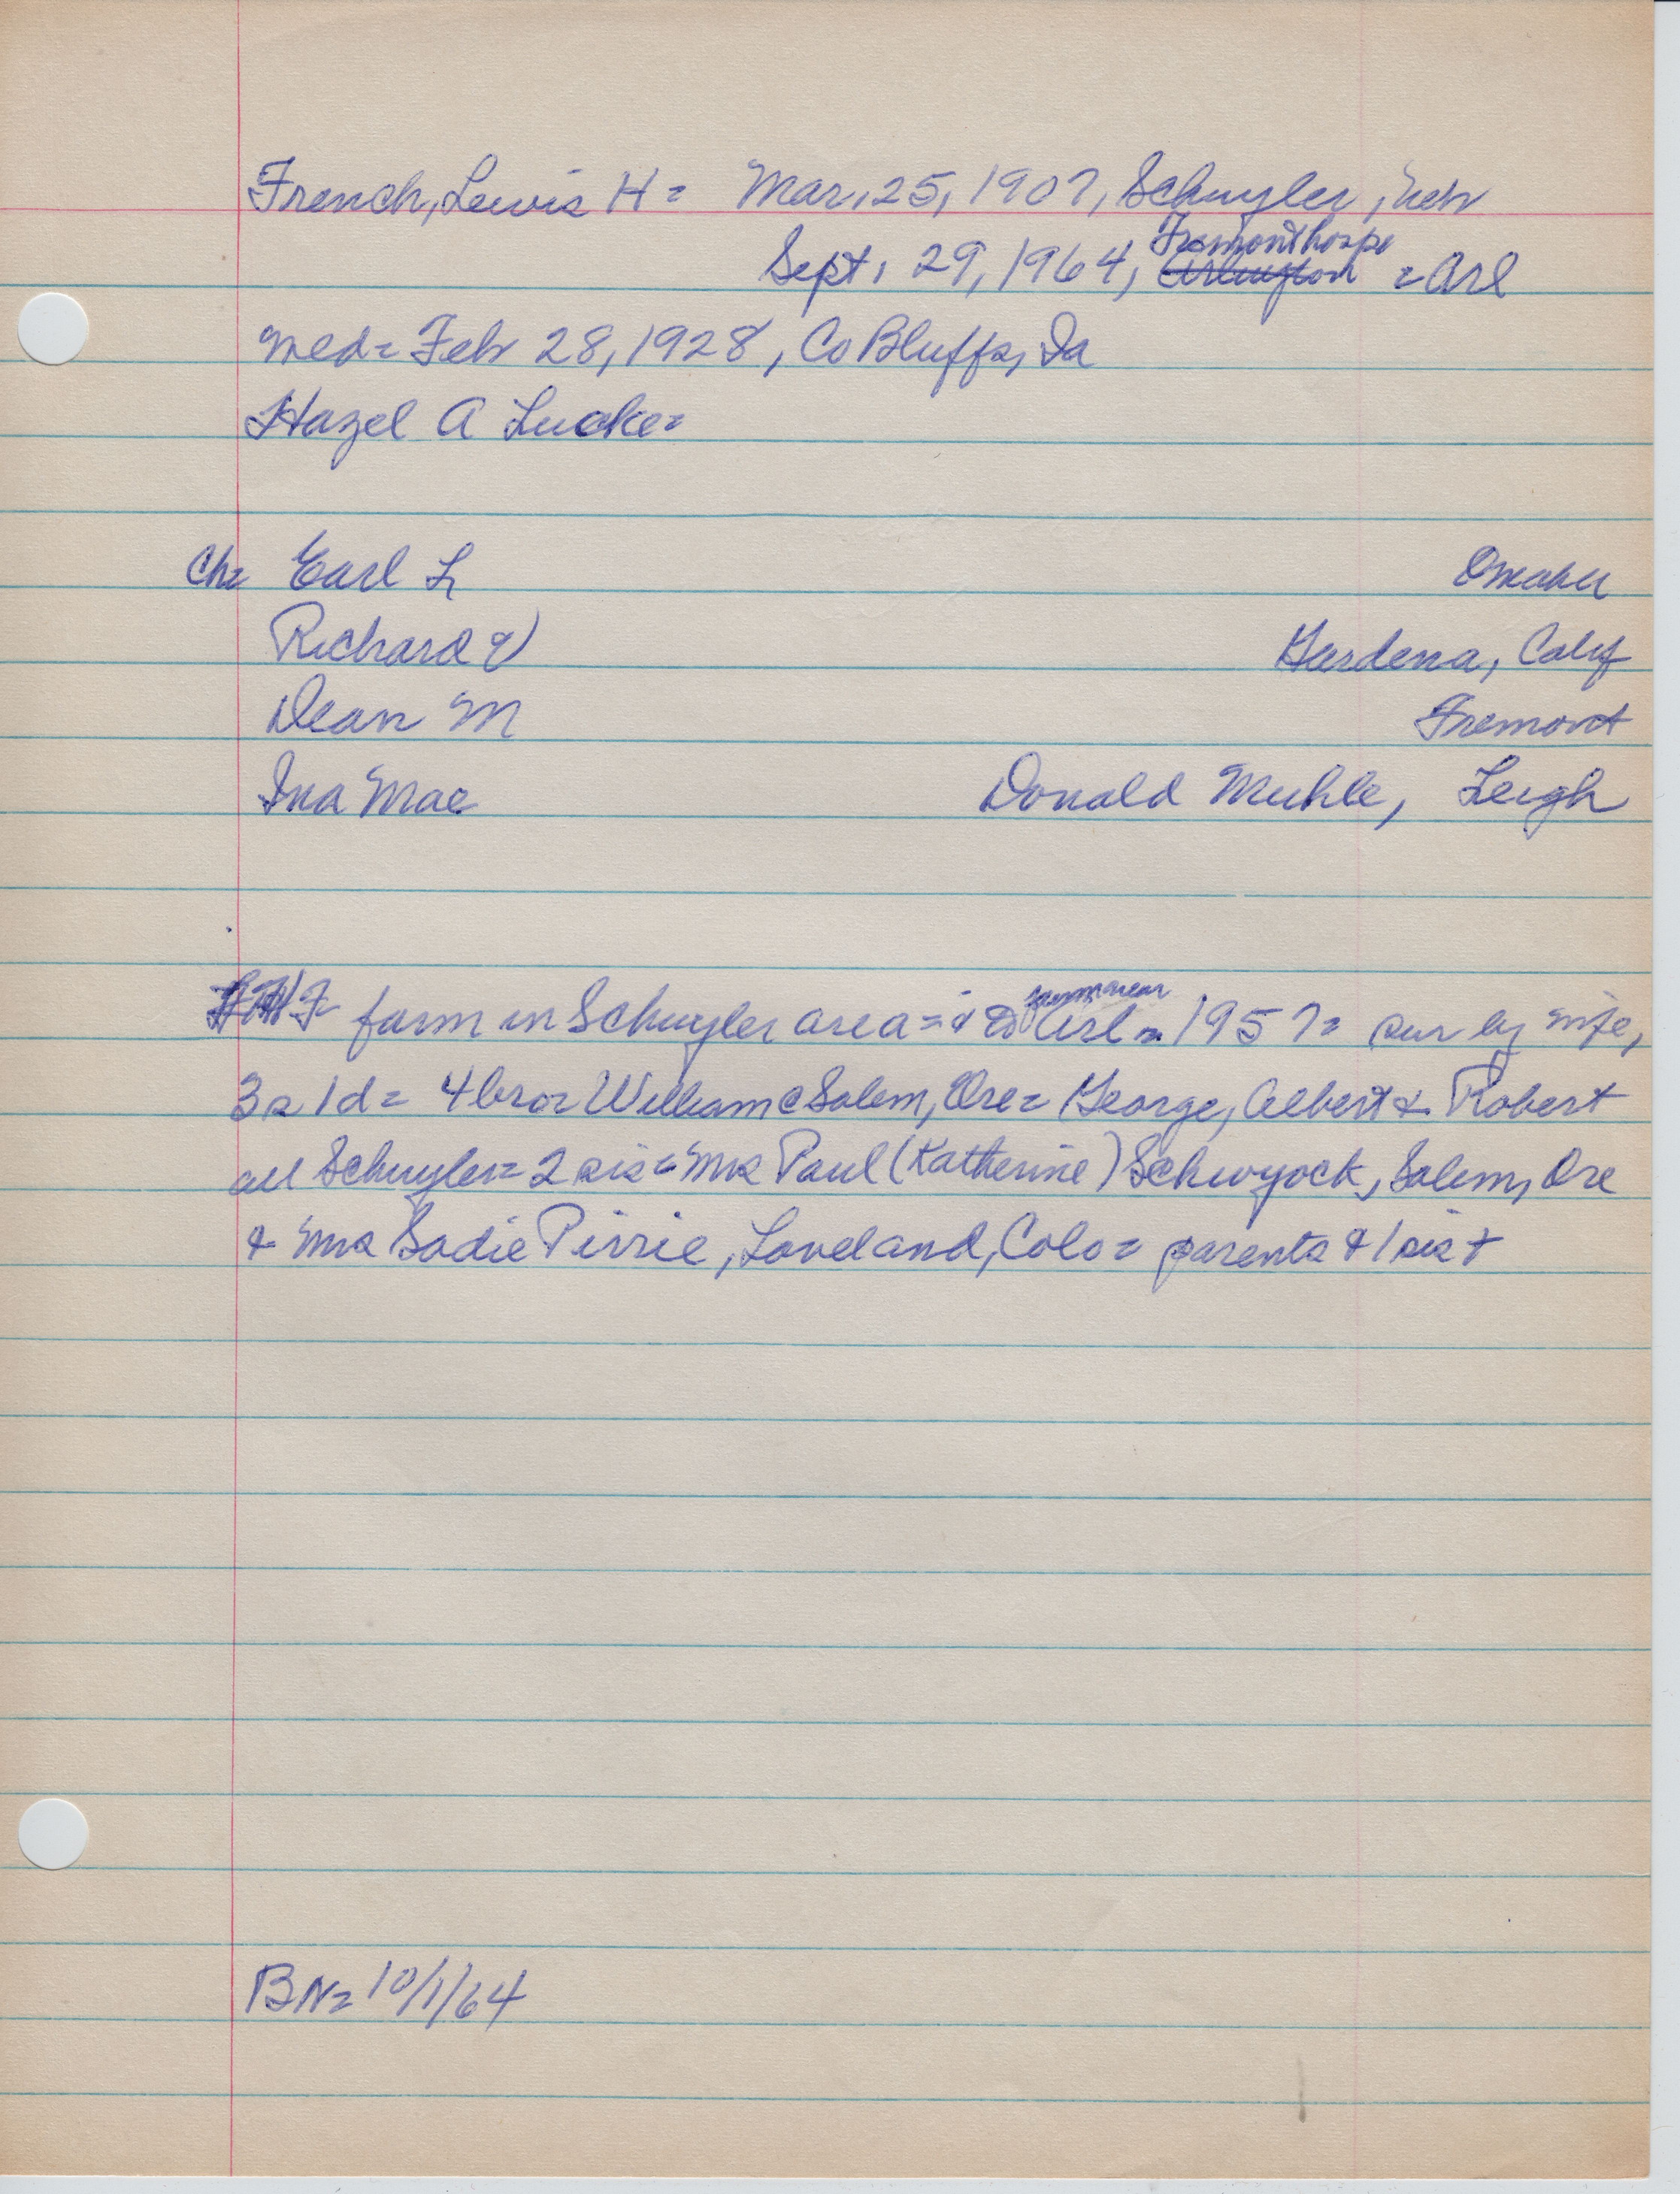 French, Lewis H = Mar, 25, 1907, Schuyler, Neb
Fremont hosps
Sept, 29, 1964, Arlington = Arl
med = Feb 28, 1928, Co Bluffs, Ia
Hazel A Lucke =
Ch = Earl L Omaha
Richard V Gardena, Calif
Dean M Fremont
Ina Mae Donald Muhle, Leigh
farm near
F farm in Schuyler area = & to Arl = 1957 = sur by wife,
3 s 1 d = 4 bros = William @ Salem, Ore = George, Albert & Robert
all Schuyler = 2 sis = Mrs Paul (Katherine) Schwyock, Salem, Ore
& Mrs Sadie Pirrie, Loveland, Colo = parents & 1 sis +
BN = 10/1/64